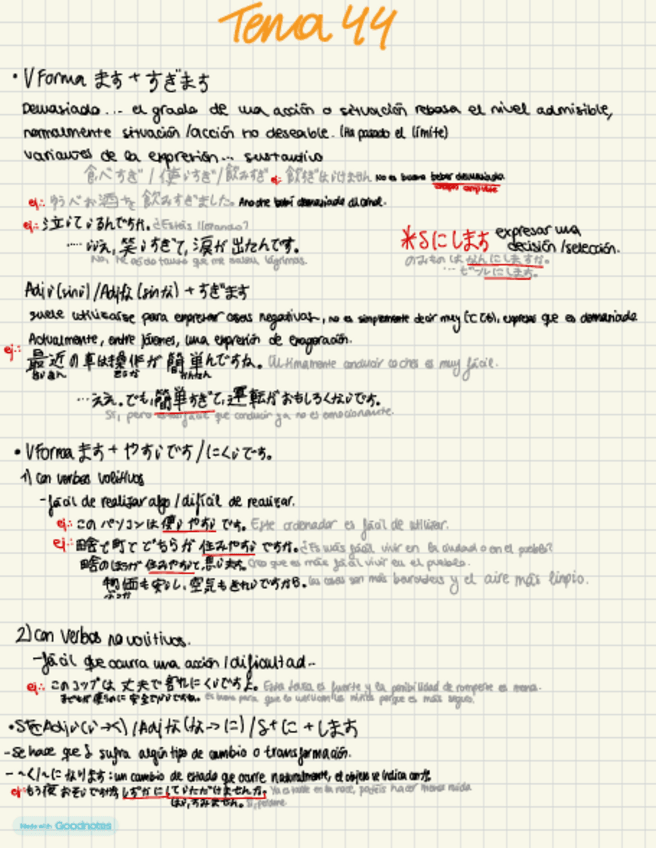 Tema 44
• V Forma ます + すぎます
Demasiado... el grado de una acción o situación rebasa el nivel admisible,
normalmente situación/acción no deseable. (Ha pasado el límite)
variantes de la expresión... sustantivo
食べすぎ / 使いすぎ / 飲みすぎ ej: いけません No es bueno beber demasiado
ej: ゆうべお酒を飲みすぎました。Anoche bebí demasiado alcohol.
ej: 泣いているんですか。¿Estás llorando?
…いいえ、笑いすぎて、涙が出たんです。
No, he tanto que me lágrimas.
*Sにします expresar una
decisión/selección.
のみものはなんにしますか。
… ビールにします。
Adj い (sin い) / Adj な (sin な) + すぎます
suele utilizarse para expresar cosas negativas, no es simplemente decir muy (とても), expresa que es demasiado
Actualmente, entre jóvenes, una expresión de exageración.
ej: 最近の車は操作が簡単んですね。Últimamente conducir coches es muy fácil.
かんたん
…ええ。でも、簡単すぎて、運転がおもしろくないです。
Sí, pero que conducir ya no es emocionante.
• V Forma ます + やすいです / にくいです。
1) Con verbos volitivos
- fácil de realizar algo / difícil de realizar.
ej: このパソコンは使いやすいです。Este ordenador es fácil de utilizar.
ej: 田舎と町でどちらが住みやすいですか。¿Es más fácil vivir en la ciudad o en el pueblo?
田舎のほうが住みやすいと思います。Creo que es más fácil vivir en el pueblo.
物価も安いし、空気もきれいですから。Las cosas son más baratas y el aire más limpio.
ぶっか
2) Con verbos no volitivos.
- fácil que ocurra una acción / dificultad..
ej: このコップは丈夫で割れにくいですよ。Esta taza es fuerte y la posibilidad de romperse es menor.
安全でいいですね。Es bueno para que lo utilicen los niños porque es más seguro.
• SをAdj い (い→く) / Adj な (な→に) / S + に + します
- Se hace que S sufra algún tipo de cambio o transformación.
- ~く/~に なります: un cambio de estado que ocurre naturalmente, el objeto se indica con
ej: もう夜おそいですから しずかにしていただけませんか。Ya es tarde en la noche, podéis hacer menos ruido
はい、すみません。Sí,
Made with Goodnotes